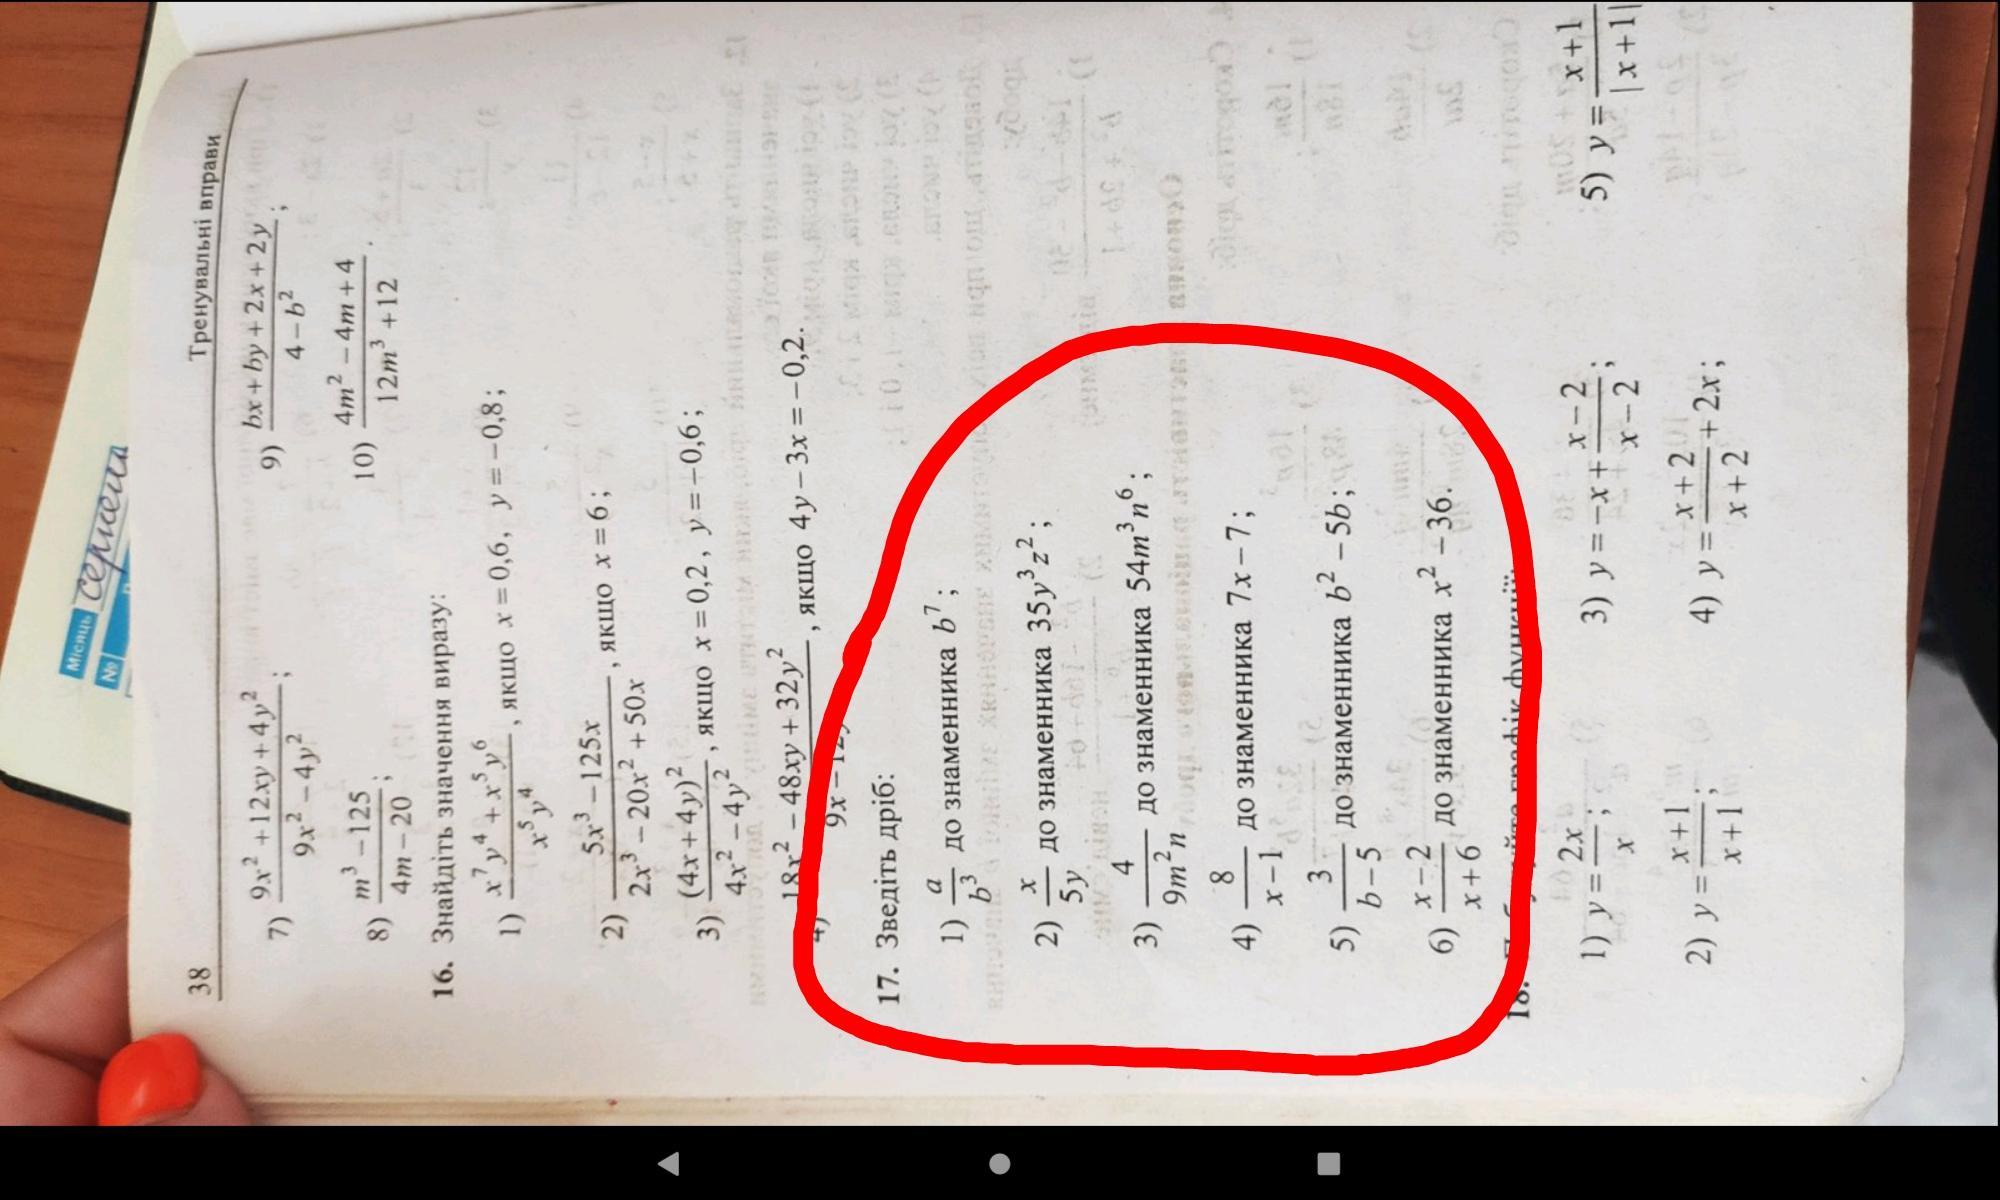 Місяць серпень
№
38 Тренувальні вправи
7) \frac{9x^2+12xy+4y^2}{9x^2-4y^2};
8) \frac{m^3-125}{4m-20};
9) \frac{bx+by+2x+2y}{4-b^2};
10) \frac{4m^2-4m+4}{12m^3+12}.
16. Знайдіть значення виразу:
1) \frac{x^7y^4+x^5y^6}{x^5y^4}, якщо x=0,6, y=−0,8;
2) \frac{5x^3-125x}{2x^3-20x^2+50x}, якщо x=6;
3) \frac{(4x+4y)^2}{4x^2-4y^2}, якщо x=0,2, y=−0,6;
4) \frac{18x^2-48xy+32y^2}{9x-12y}, якщо 4y−3x=−0,2.
17. Зведіть дріб:
1) \frac{a}{b^3} до знаменника b^7;
2) \frac{x}{5y} до знаменника 35y^3z^2;
3) \frac{4}{9m^2n} до знаменника 54m^3n^6;
4) \frac{8}{x-1} до знаменника 7x−7;
5) \frac{3}{b-5} до знаменника b^2−5b;
6) \frac{x-2}{x+6} до знаменника x^2−36.
18. графік функції:
1) y=\frac{2x}{x};
2) y=\frac{x+1}{x+1};
3) y=−x+\frac{x-2}{x-2};
4) y=\frac{x+2}{x+2}+2x;
5) y=\frac{x+1}{|x+1|}